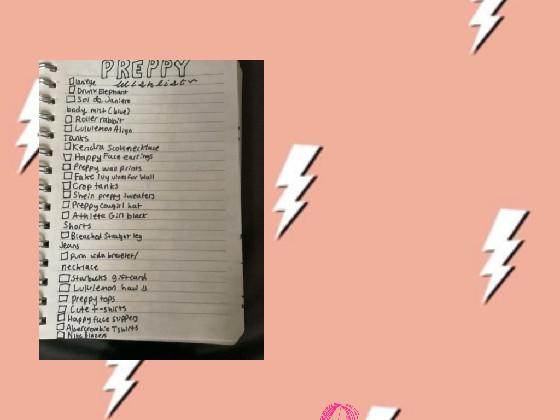 PREPPY
wishlist
laneige
Drunk Elephant
Sol de Janiero
body mist (blue)
Roller rabbit
Lululemon Align
Tanks
Kendra Scott necklace
Happy Face earrings
Preppy wall prints
Fake Ivy vines for wall
Crop tanks
Shein preppy sweaters
Preppy cowgirl hat
Athleta Girl black
Shorts
Bleached Straight leg
Jeans
Pura vida bracelet/
necklace
Starbucks giftcard
Lululemon
preppy tops
Cute t-shirts
Happy face slippers
Abercrombie Tshirts
Nike blazers